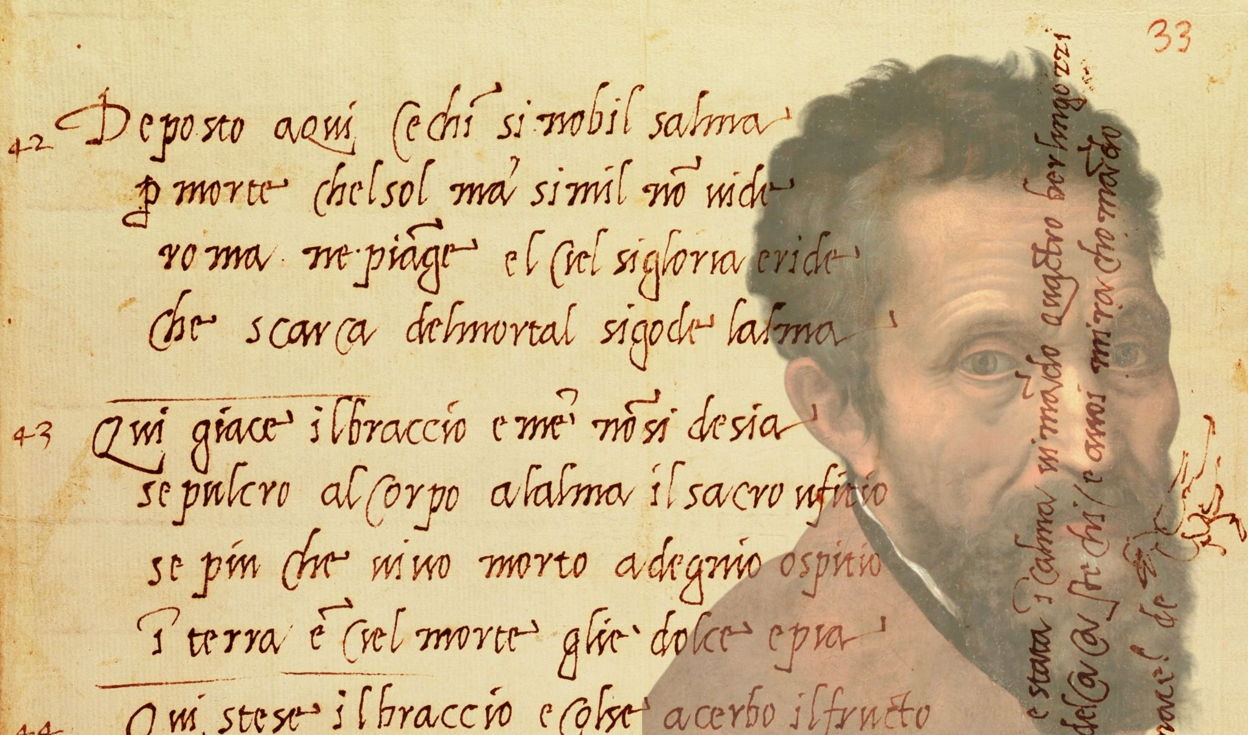 33
42 Deposto a qui Cechĩ si nobil salma
p̱ morte chel sol ma' simil nõ uide
roma ne piãge el ciel si gloria eride
che scarca del mortal si gode lalma
43 Qui giace il braccio e me' nõ si desia
sepulcro al corpo alalma il sacro ufitio
se piu che uiuo morto a degnio ospitio
ĩ terra e ĩ ciel morte glie dolce e pia
44 Qui stese il braccio e colse acerbo il fructo
e stata ĩ calma ui mãdo quatro berlingozzi